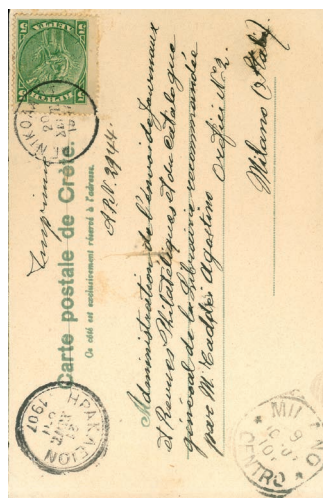 Imprimé
Carte postale de Crète.
Ce côté est exclusivement réservé à l'adresse.
Administration de l'envoi de Journaux
et Revues Philatéliques et du catalogue
général de la librairie recommandée
par M. Agostino Orefici No 2.
Milano
ΗΡΑΚΛΕΙΟΝ
1907
MILANO
CENTRO